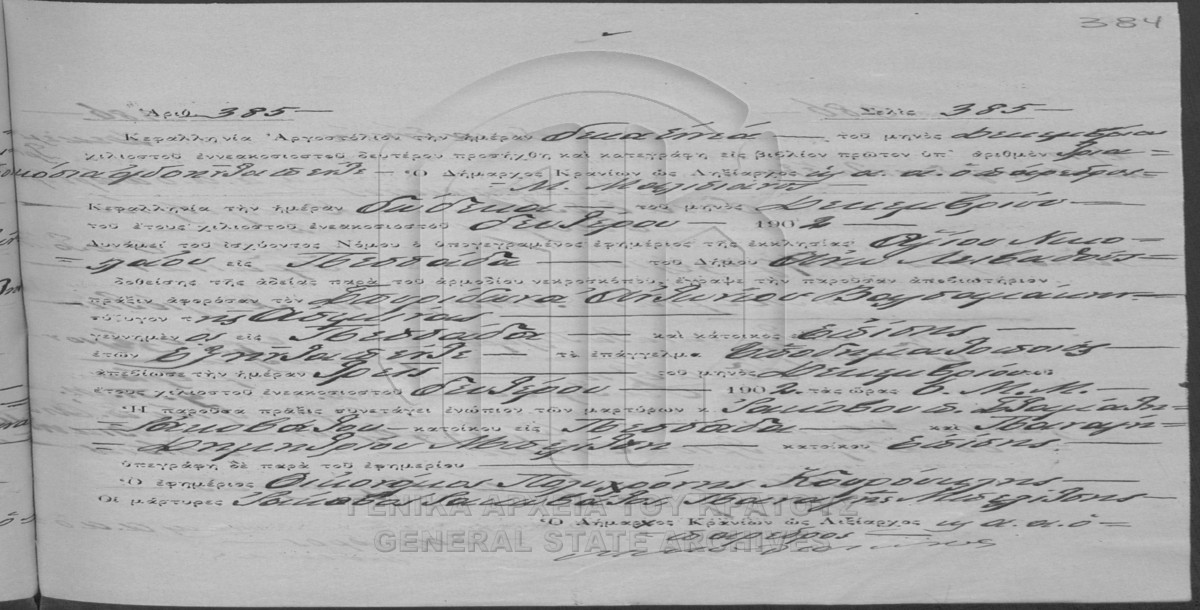 384
Ἀριθ. 385 Σελὶς 385
Κεφαλληνία Ἀργοστόλιον τὴν ἡμέραν δεκα ἐννέα τοῦ μηνὸς Δεκεμβρίου
χιλιοστοῦ ἐννεακοσιοστοῦ δευτέρου προσήχθη καὶ κατεγράφη εἰς βιβλίον πρῶτον ὑπ' ἀριθμὸν τρια=
κόσια ὀγδοήκοντα πέντε – Ὁ Δήμαρχος Κρανίων ὡς Ληξίαρχος κ. α. α. ὁ πάρεδρος
Μ.
Κεφαλληνία τὴν ἡμέραν δώδεκα τοῦ μηνὸς Δεκεμβρίου
τοῦ ἔτους χιλιοστοῦ ἐνεακοσιοστοῦ δευτέρου 1902
Δυνάμει τοῦ ἰσχύοντος Νόμου ὁ ὑπογεγραμένος ἐφημέριος τῆς ἐκκλησίας Ἁγίου Νικο=
=λάου εἰς Πεσσάδα τοῦ Δήμου Λειβαθοῦς
δοθείσης τῆς ἀδείας παρὰ τοῦ ἁρμοδίου νεκροσκόπου, ἔγραψε τὴν παροῦσαν ἀποβιωτήριον
πρᾶξιν ἀφορῶσαν τὸν Σπυρίδωνα Ἀντωνίου
σύζυγον τῆς
γεννημένοι εἰς Πεσσάδα καὶ κάτοικος ἐπίσης
ἐτῶν ἑξήντα πέντε τὸ ἐπάγγελμα ὑποδηματοποιός
ἀπεβίωσε τὴν ἡμέραν τρεῖς τοῦ μηνὸς Δεκεμβρίου
ἔτους χιλιοστοῦ ἐνεακοσιοστοῦ δευτέρου 1902 τὰς ὥρας 6. Μ.Μ.
Ἡ παροῦσα πρᾶξις συνετάγει ἐνώπιον τῶν μαρτύρων κ. Ἰακώβου
Ἰακωβάτου κατοίκου εἰς Πεσσάδα καὶ Παναγῆ=
= Δημητρίου κατοίκου ἐπίσης.
ὑπεγράφη δὲ παρὰ τοῦ ἐφημερίου
Ὁ ἐφημέριος Οἰκονόμος Πολυχρόνης
Οἱ μάρτυρες Ἰάκωβος Ἰακωβάτος Παναγῆς
ΓΕΝΙΚΑ ΑΡΧΕΙΑ ΤΟΥ ΚΡΑΤΟΥΣ
Ὁ Δήμαρχος Κρανίων ὡς Ληξίαρχος κ. α. α. ὁ=
πάρεδρος
GENERAL STATE ARCHIVES